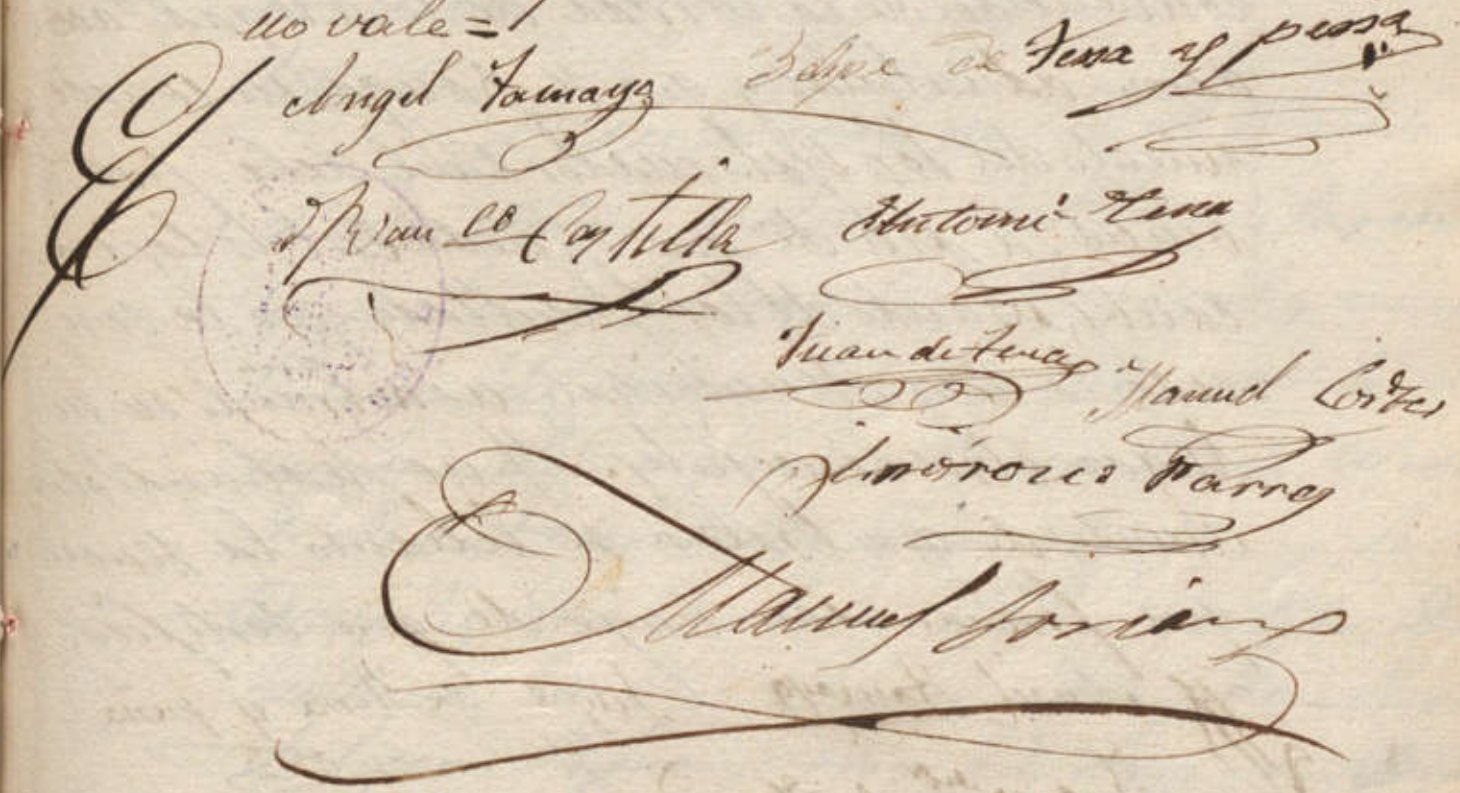 no vale =
Angel Tamayo Felipe de Tena y
Fran co Castilla Antonio Tena
Juan de Tena Manuel Cortes
Parra
Manuel Soriano